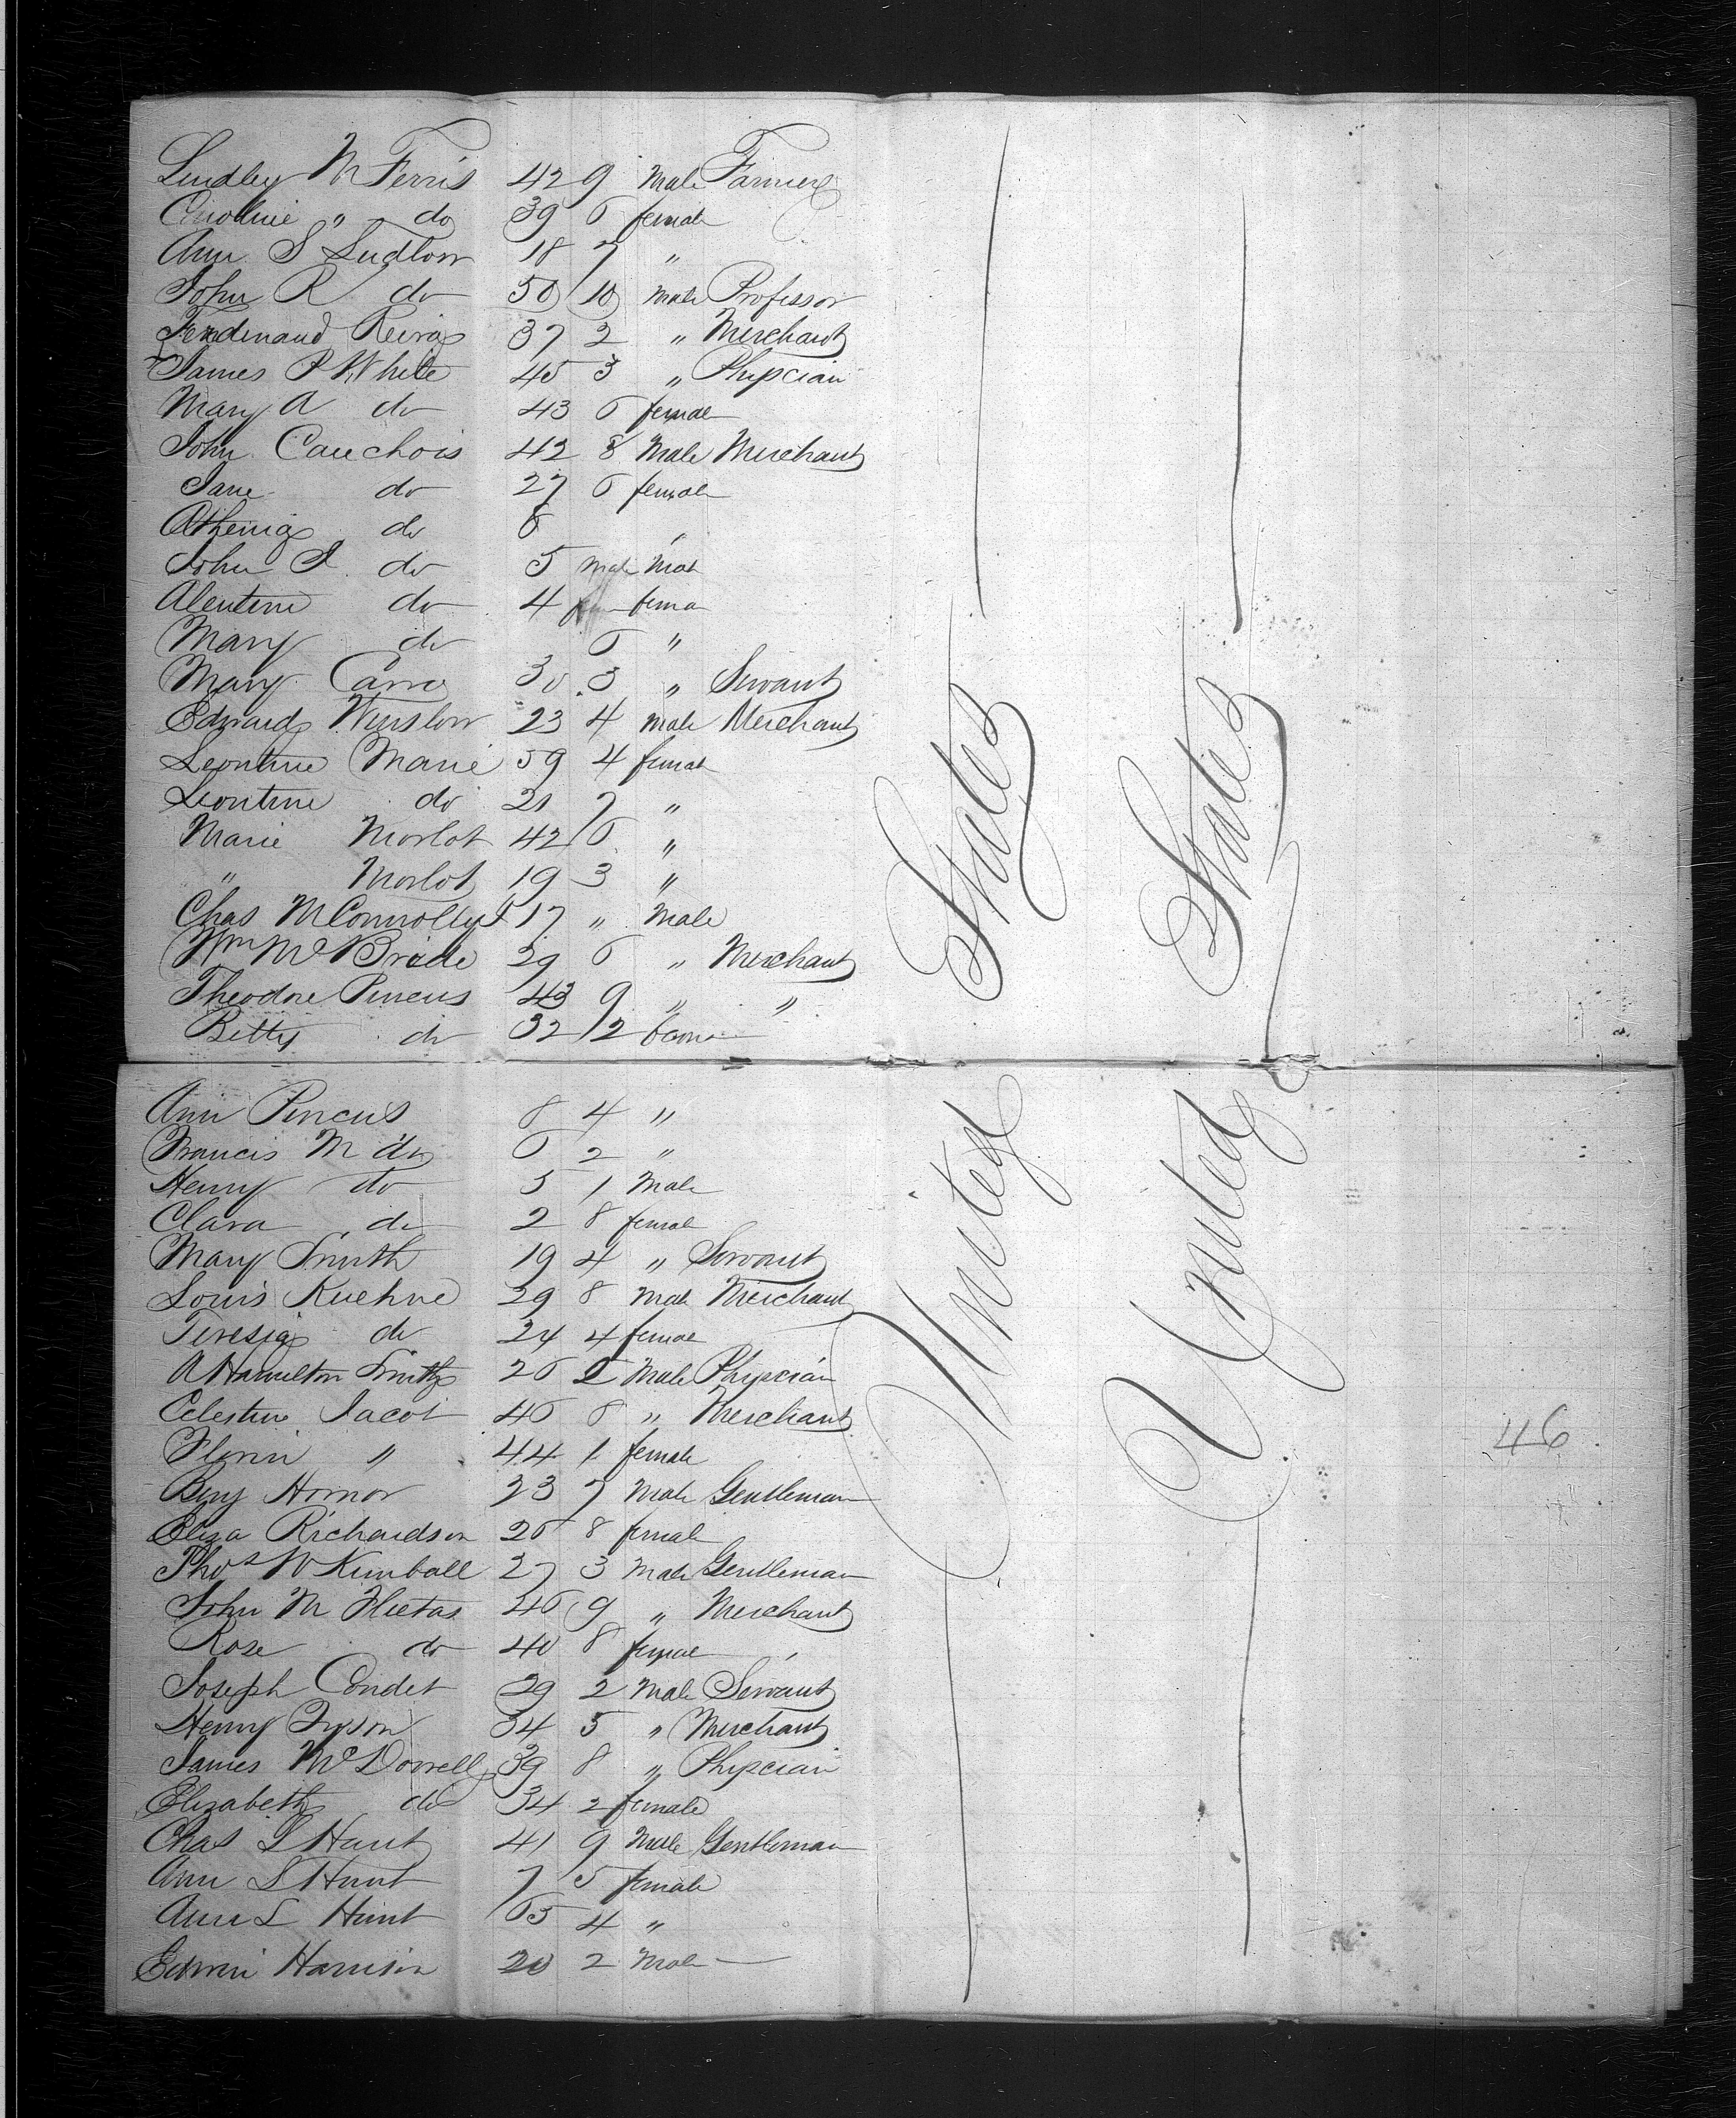 Lindley M Ferris 42 9 Male Farmer
Caroline " do 39 6 female
Ann S Ludlow 18 7 "
John R do 50 10 male Professor
Ferdinand 37 2 " Merchant
James P White 45 3 " Physcian
Mary A do 43 6 female
John Cauchois 42 8 Male Merchant
Jane do 27 6 female
Athenia do 8 "
John J do 5 male
Alentine do 4 fema
Mary do 6 "
Mary Carr 30 3 " Servant
Edward Winslow 23 4 male Merchant
Leontine Marie 59 4 female
Leontine do 21 7 "
Marie Morlot 42 6 "
" Morlot 19 3 "
Chas M Connolly 17 " Male
Wm McBride 29 6 " Merchant
Theodore Pincus 43 9 " "
Betty do 32 2 fem
Ann Pincus 8 4 "
Francis M do 6 2 "
Henry do 5 1 Male
Clara do 2 8 female
Mary Smith 19 4 " Servant
Louis Kuehne 29 8 Male Merchant
Teresia do 24 4 female
A Hamilton Smith 26 2 Male Physcian
Celestine Jacot 46 8 " Merchant
" 44 1 female
Benj Hornor 23 7 Male Gentleman
Eliza Richardson 26 8 female
Thos W Kimball 27 3 Male Gentleman
John M 46 9 " Merchant
Rose do 40 8 female
Joseph Condit 29 2 Male Servant
Henry Tyson 34 5 " Merchant
James McDowell 39 8 " Physcian
Elizabeth do 34 2 female
Chas L Hunt 41 9 Male Gentleman
Ann L Hunt 7 5 female
Ann L Hunt 65 4 "
Edwin Harrison 20 2 Male
United States
United States
46